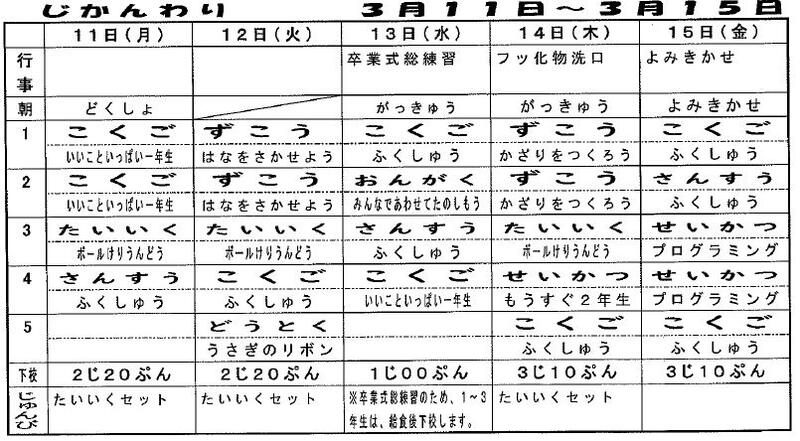 じかんわり 3月11日～3月15日
11日(月) 12日(火) 13日(水) 14日(木) 15日(金)
行事 卒業式総練習 フッ化物洗口 よみきかせ
朝 どくしょ がっきゅう がっきゅう よみきかせ
1 こくご ずこう こくご ずこう こくご
いいこといっぱい一年生 はなをさかせよう ふくしゅう かざりをつくろう ふくしゅう
2 こくご ずこう おんがく ずこう さんすう
いいこといっぱい一年生 はなをさかせよう みんなであわせてたのしもう かざりをつくろう ふくしゅう
3 たいいく たいいく さんすう たいいく せいかつ
ボールけりうんどう ボールけりうんどう ふくしゅう ボールけりうんどう プログラミング
4 さんすう こくご こくご せいかつ せいかつ
ふくしゅう ふくしゅう いいこといっぱい一年生 もうすぐ2年生 プログラミング
5 どうとく こくご こくご
うさぎのリボン ふくしゅう ふくしゅう
下校 2じ20ぷん 2じ20ぷん 1じ00ぷん 3じ10ぷん 3じ10ぷん
じゅんび たいいくセット たいいくセット ※卒業式総練習のため、1～3 たいいくセット
年生は、給食後下校します。